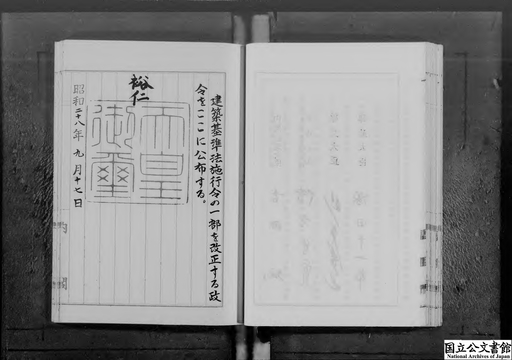 建築基準法施行令の一部を改正する政
令をここに公布する。
裕仁
天皇
御璽
昭和二十八年九月十七日
国立公文書館
National Archives of Japan